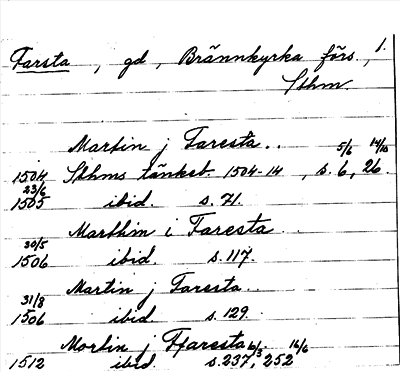 Farsta, gd, Brännkyrka förs., 1.
Sthm.
Martin j Faresta..
5/6 14/10
1504 Sthms tänkeb. 1504-14, s. 6, 26.
23/6
1505 ibid. s. 71.
Marthin i Faresta..
30/5
1506 ibid. s. 117.
Martin j Faresta..
31/8
1506 ibid. s. 129.
Mortin j Ffaresta.. 6/3 16/6
1512 ibid. s. 237, 252